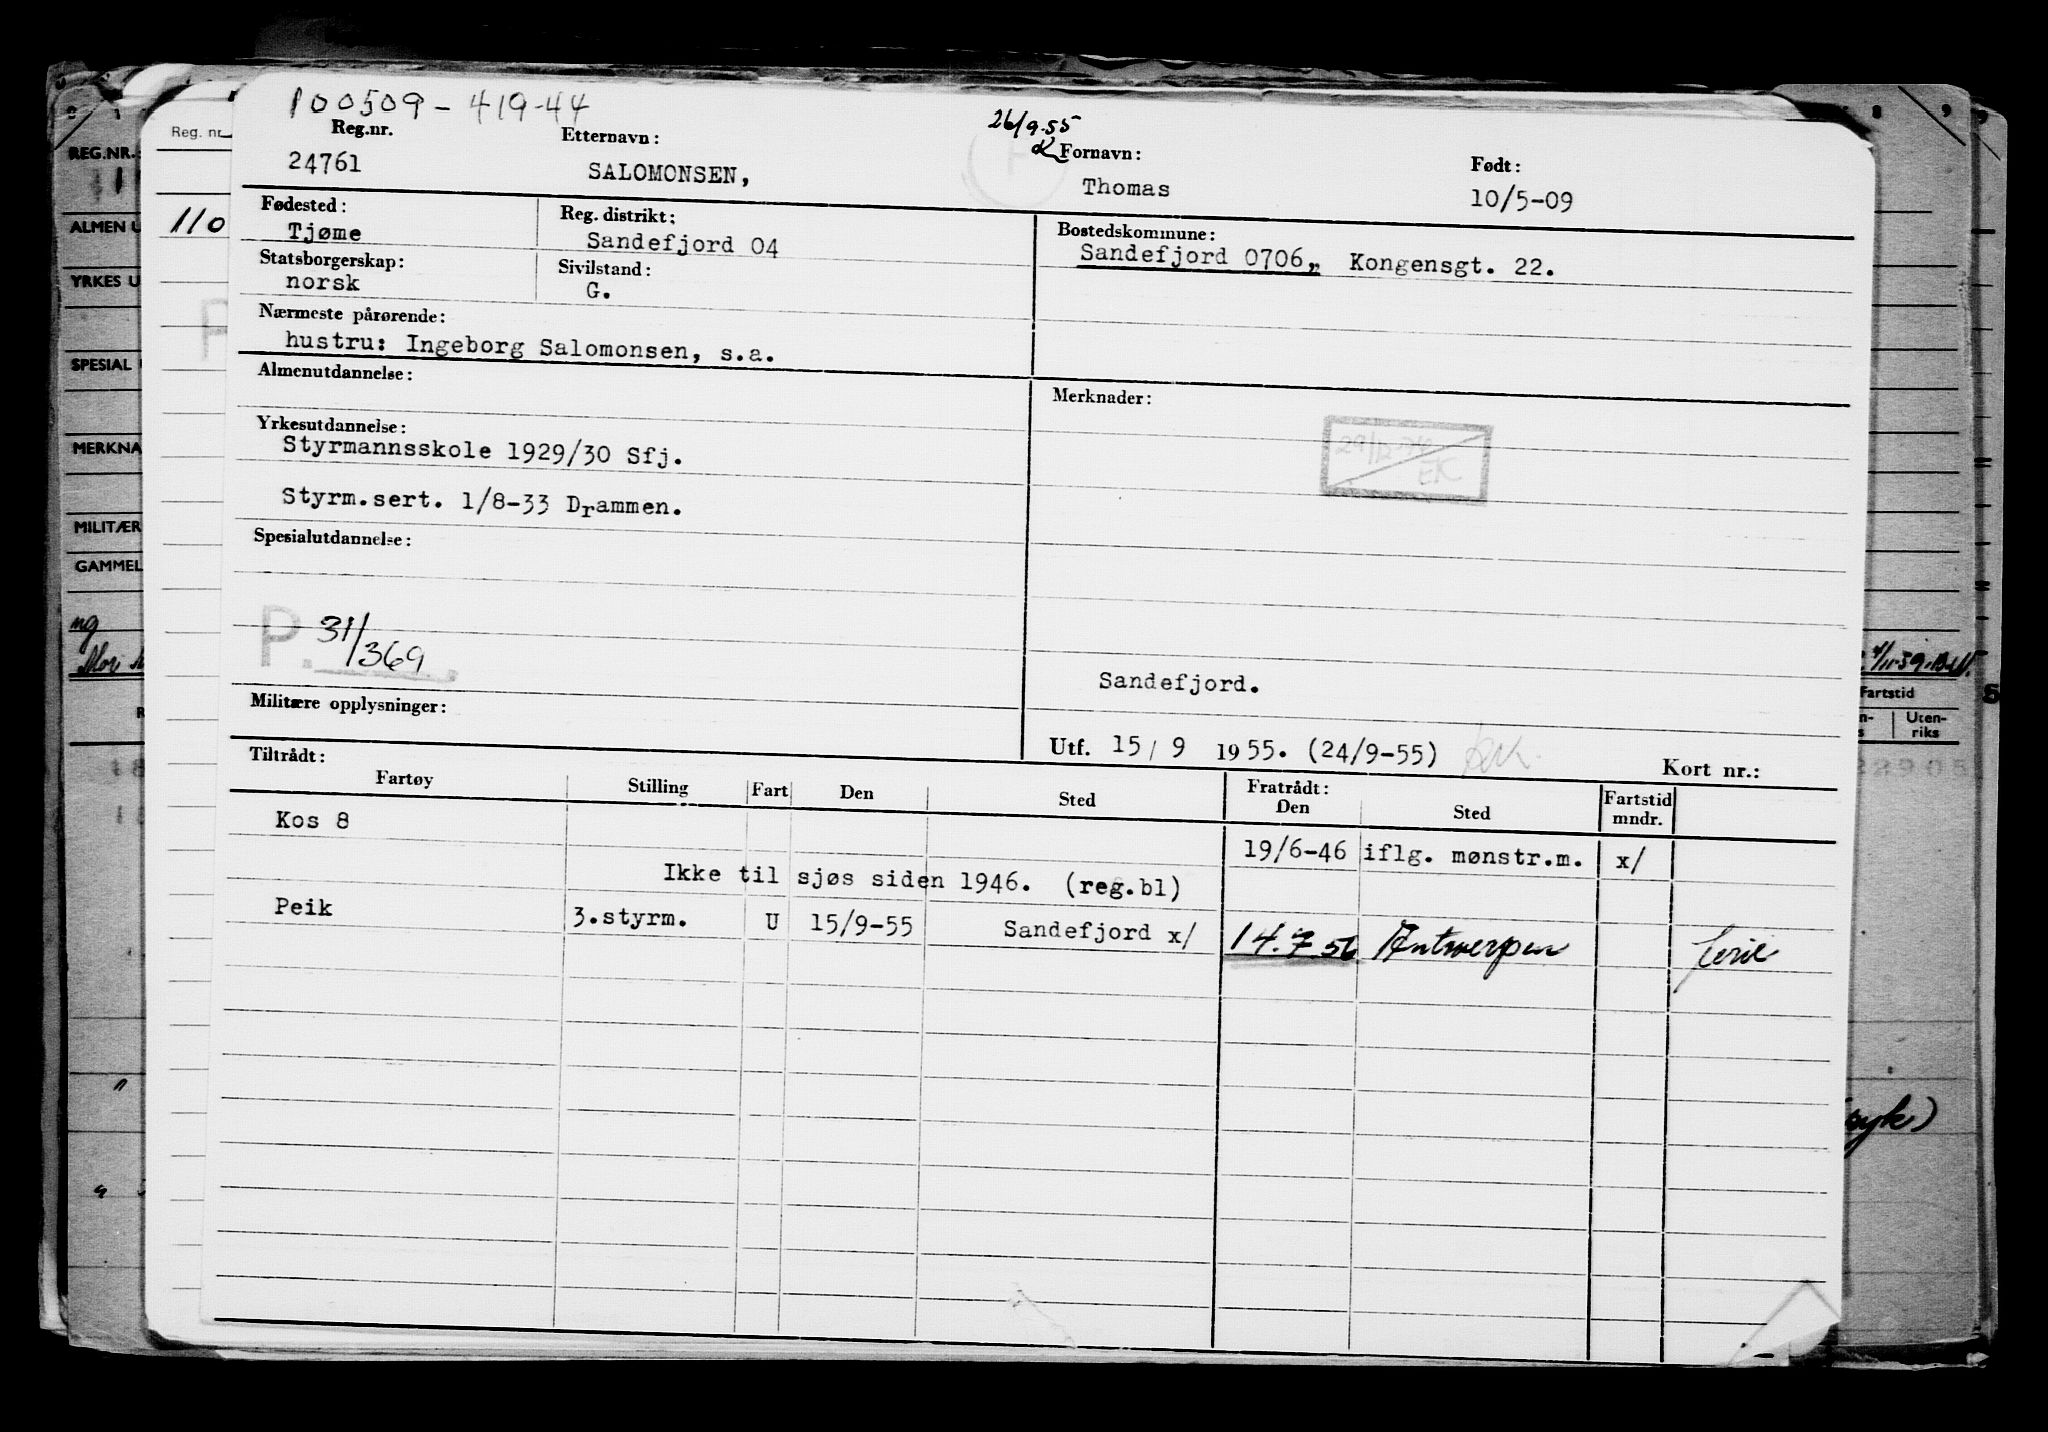 100509-419-44
26/9.55
Reg.nr. Etternavn: Fornavn: Født:
24761 SALOMONSEN, Thomas 10/5-09
Fødested: Reg. distrikt: Bostedskommune:
Tjøme Sandefjord 04 Sandefjord 0706, Kongensgt. 22.
Statsborgerskap: Sivilstand:
norsk G.
Nærmeste pårørende:
hustru: Ingeborg Salomonsen, s.a.
Almenutdannelse: Merknader:
Yrkesutdannelse:
Styrmannsskole 1929/30 Sfj.
EK
Styrm.sert. 1/8-33 Drammen.
Spesialutdannelse:
P. 31/369
Sandefjord.
Militære opplysninger:
Utf. 15/9 1955. (24/9-55) Kort nr.:
Tiltrådt: Fratrådt:
Fartøy Stilling Fart Den Sted Den Sted Fartstid mndr.
Kos 8 19/6-46 iflg. mønstr.m. x/
Ikke til sjøs siden 1946. (reg.bl)
Peik 3.styrm. U 15/9-55 Sandefjord x/ 14.7 56 Antwerpen ferie
Reg. nr
110
REG.NR.:
ALMEN U
YRKES U
SPESIAL
MERKNA
MILITÆR
GAMMEL
ng
Fartstid
Uten-
riks